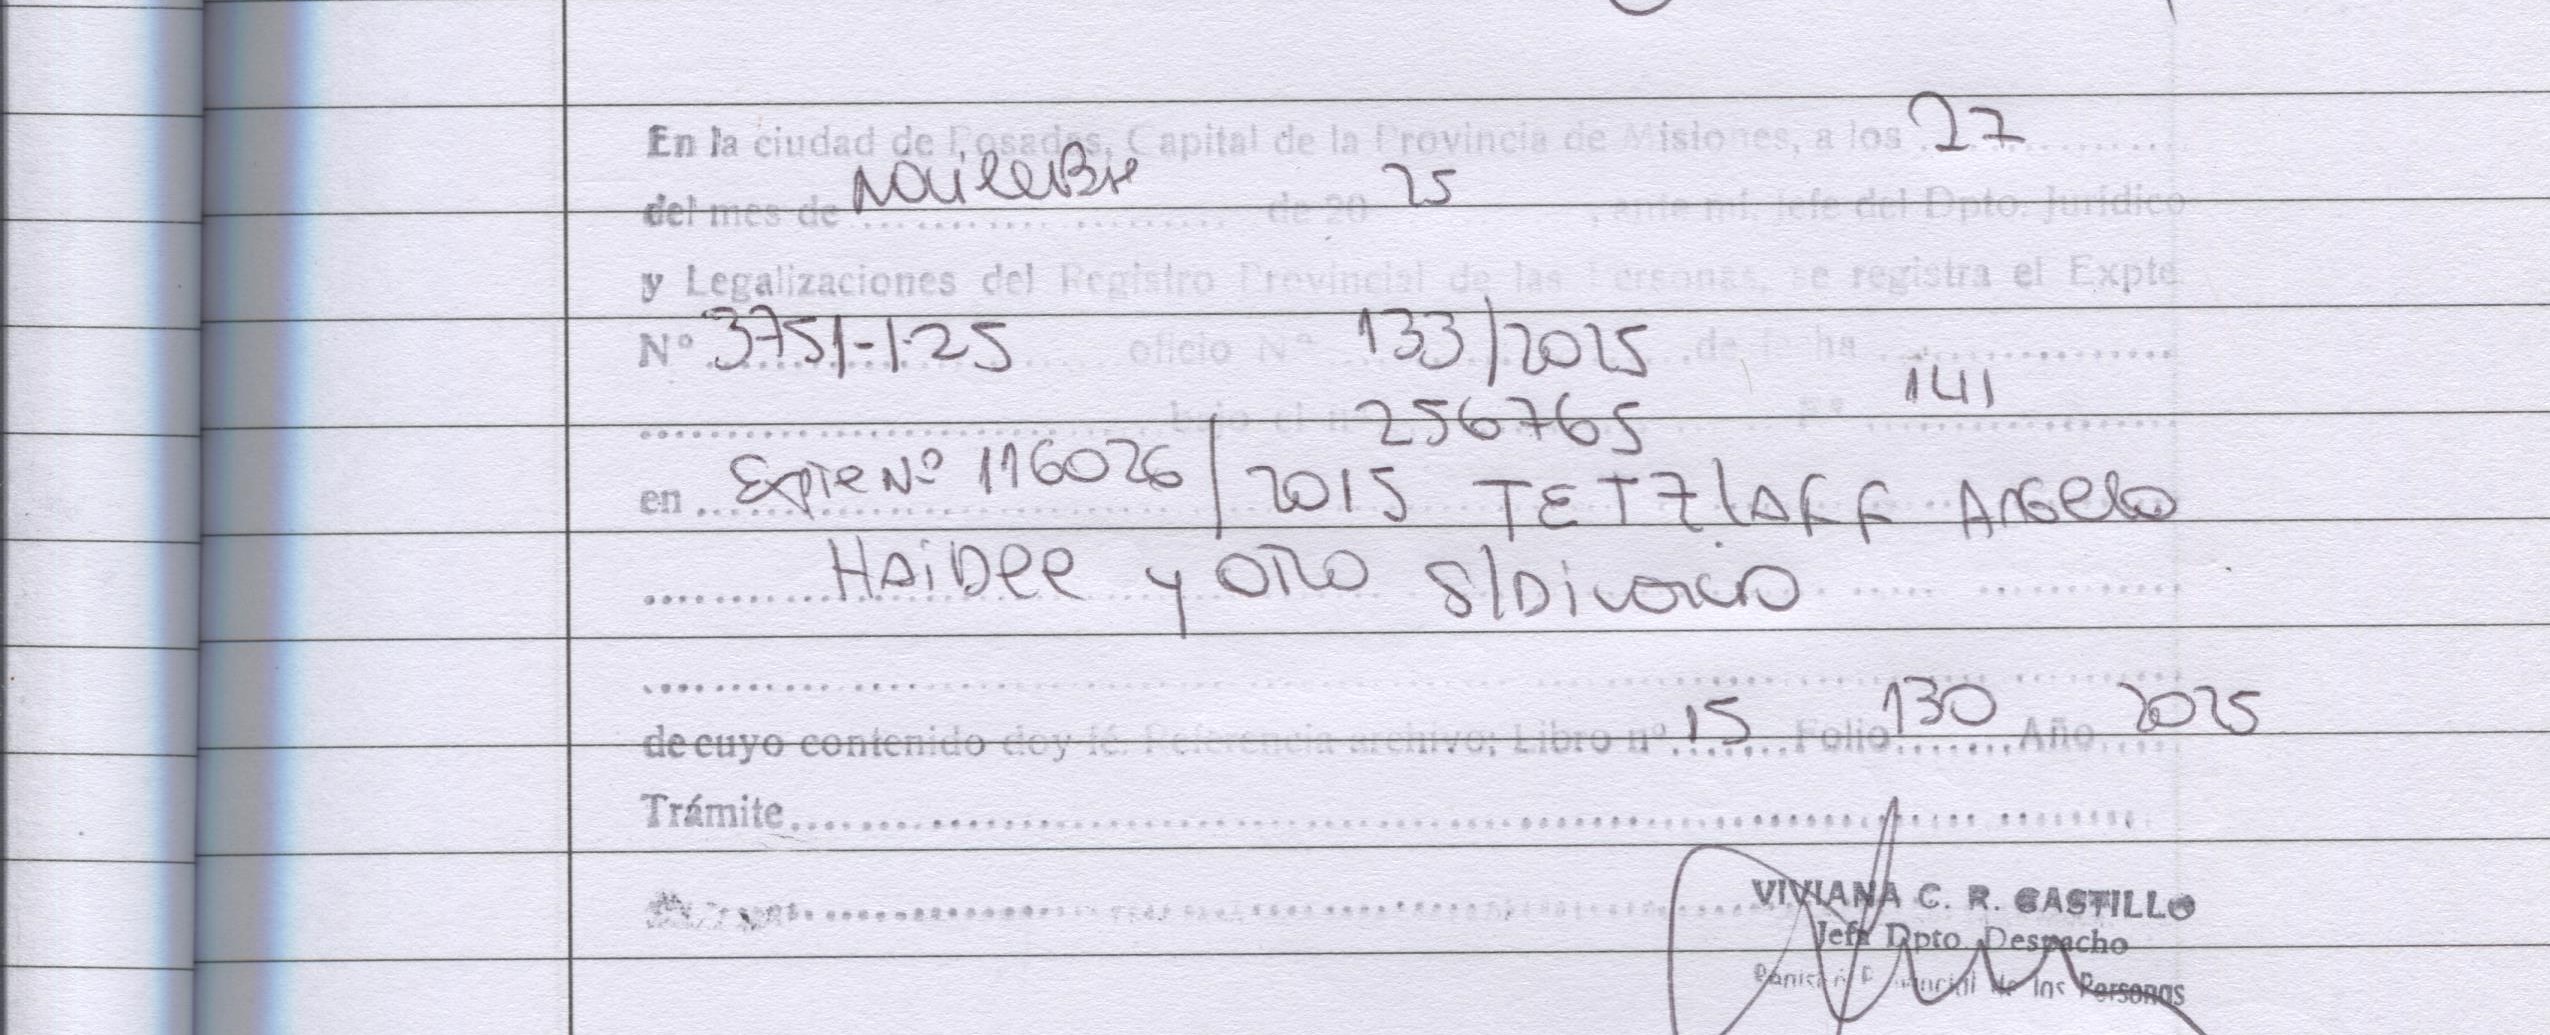 En la ciudad de Posadas, Capital de la Provincia de Misiones, a los 27
del mes de Noviembre de 20 25, ante mí, Jefe del Dpto. Jurídico
y Legalizaciones del Registro Provincial de las Personas, se registra el Expte
Nº 3751-I-25 oficio Nº 133/2025 de fecha
bajo el nº 256765 Fº 141
en Expte Nº 116026/2015 TETZLAFF Angela
HAIDEE y OTRO S/DIVORCIO
de cuyo contenido doy fé. Referencia archivo; Libro nº 15 Folio 130 Año 2025
Trámite
VIVIANA C. R. CASTILLO
Jefa Dpto Despacho
Provincial de las Personas